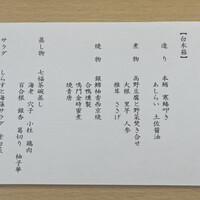 【白木箱】
造り 本鮪 寒鰤叩き
あしらい 土佐醤油
煮物 高野豆腐と野菜焚き合せ
大根 里芋 人参
椎茸 ささげ
焼物 銀鱈柚香西京焼
合鴨燻製
鳴門金時蜜煮
焼青唐
蒸し物 七福茶碗蒸し
海老 穴子 小柱 鶏肉
百合根 銀杏 葛切り 柚子華
サラダ しらすと海藻サラダ